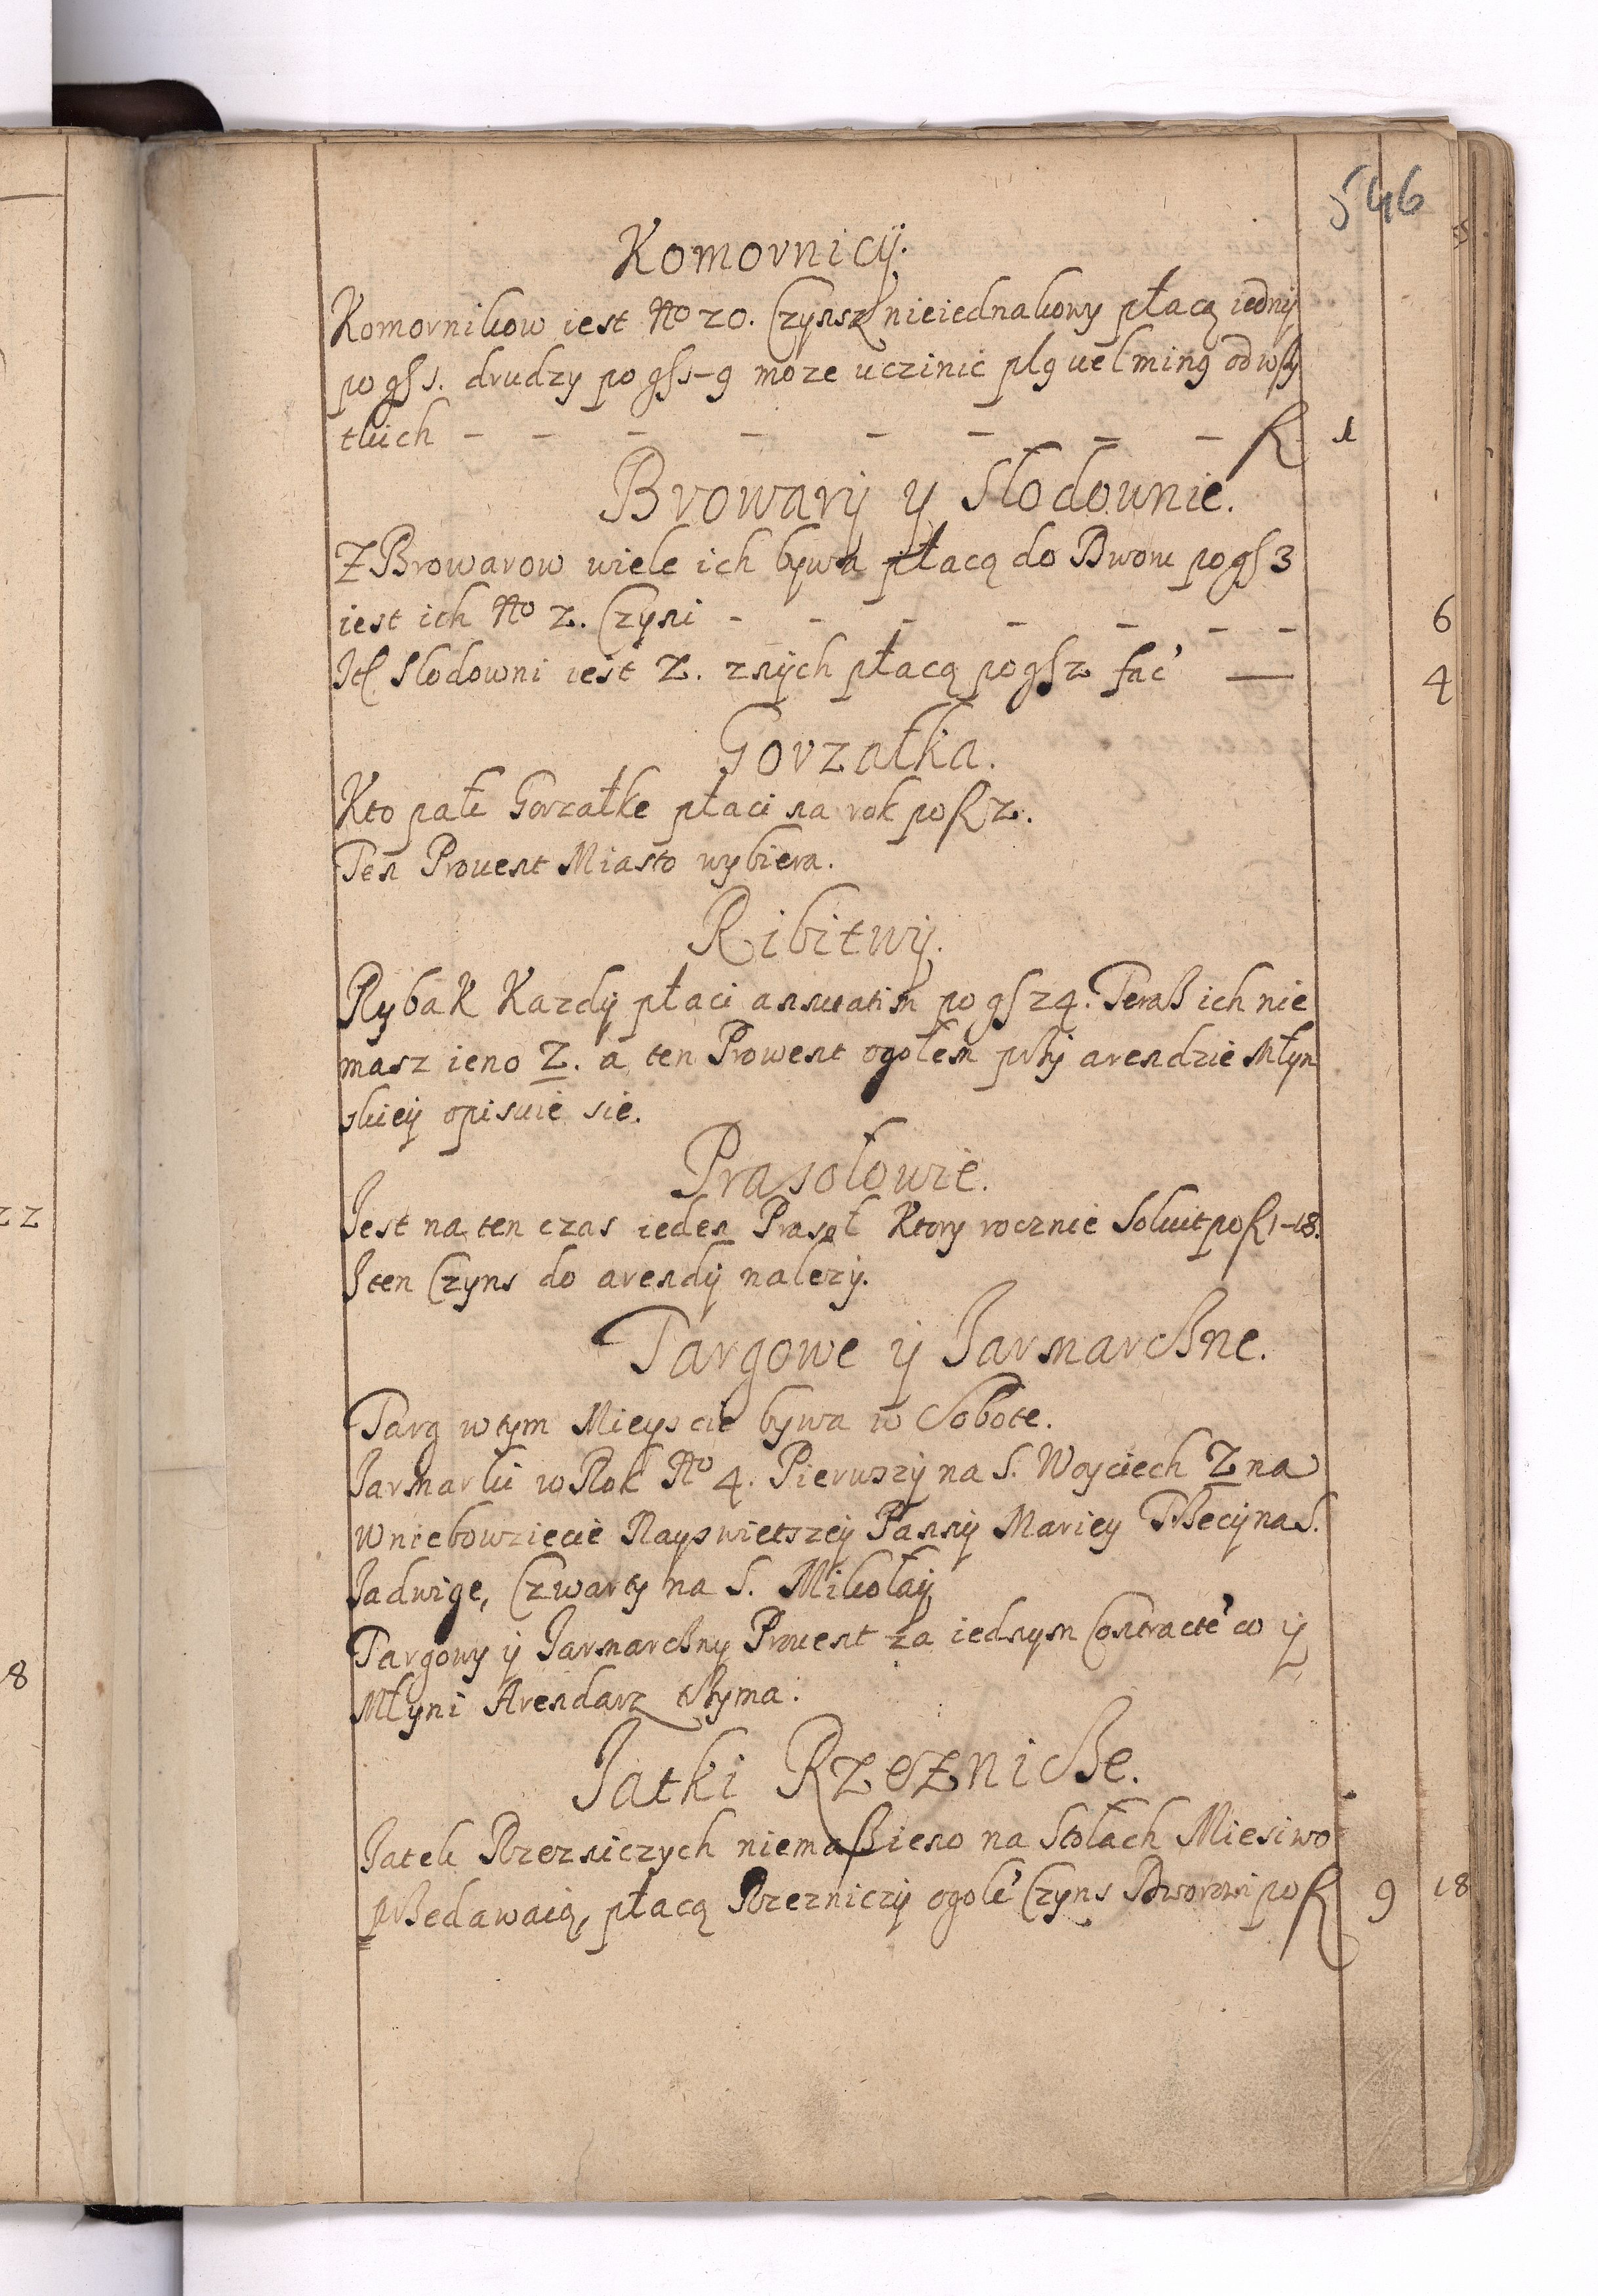 546
Komornicÿ.
Komornikow iest No 20. Czynsz nieiednakowy płacą iednÿ
po gſ 1. drudzy po gſ 1-9 moze uczinic pl9 uel min9 od wßÿ
tkich - - - - - - - - fl 1
Browarÿ y Slodownie.
Z Browarow wiele ich bywa płacą do Dworu po gſ 3
iest ich No 2. Czyni - - - - - - - 6
Jtſ Slodowni iest 2. z nÿch płacą po gſ 2 fac — 4
Gorzałka.
Kto pali Gorzałke płaci na rok po fl 2.
Ten Prouent Miasto wybiera.
Ribitwÿ.
Rybak Kazdÿ płaci annuatim po gſ 24. Teraß ich nie
masz ieno 2. a ten Prowent ogołem prßÿ arendzie Młyn
skieÿ opisuie sie.
Prasołowie.
Jest na ten czas ieden Prasoł Ktory rocznie Soluit po fl 1-18.
J ten Czyns do arendÿ nalezÿ.
Targowe ÿ Jarmarcßne.
Targ w tym Mieyscie bywa w Sobote.
Jarmarki w Rok No 4. Pierwszÿ na S. Woyciech 2 na
Wniebowziecie Nayswietszeÿ Pannÿ Mariey Trßecÿ na S.
Jadwige, Czwarty na S. Mikołaÿ
Targowy ÿ Jarmarcßny Prouent za iednym Contracte co ÿ
Młyni Arendarz trßyma.
Jatki Rzeznicße.
Jatek Rzezniczych niemaß ieno na Stołach Miesiwo
prßedawaią, płacą Rzezniczÿ ogołe Czyns Dworowi po fl 9 18
22
8